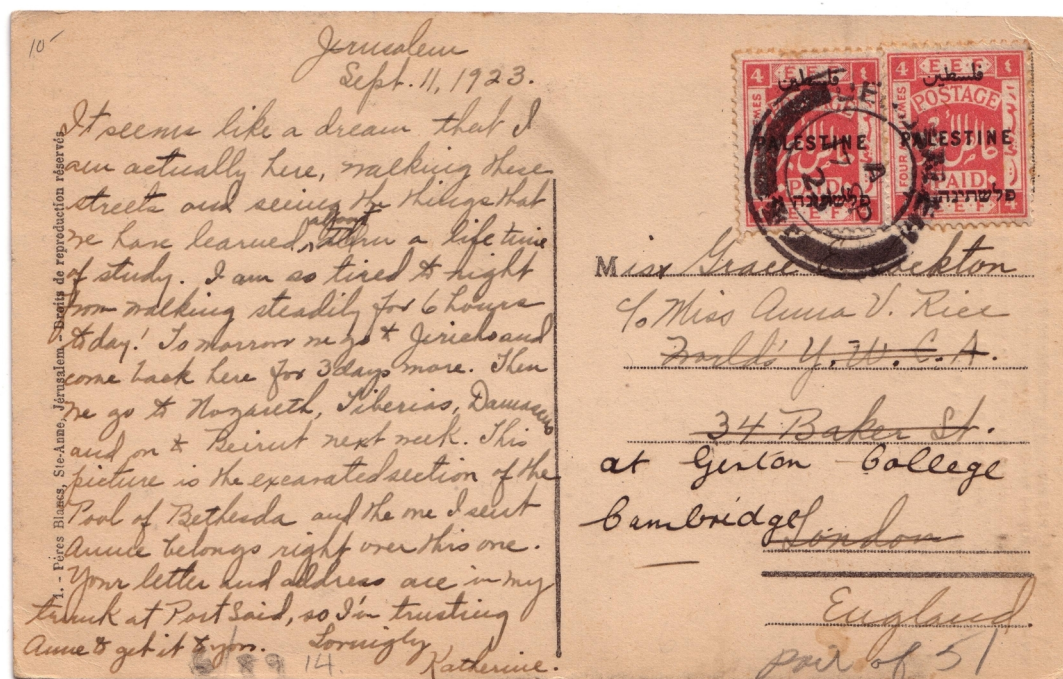 10-
Jerusalem
Sept. 11, 1923.
It seems like a dream that I
am actually here, walking these
streets and seeing the things that
we have learned, about a life time
of study. I am so tired to night
from walking steadily for 6 hours
today! Tomorrow we go to Jericho and
come back here for 3 days more. Then
we go to Nazareth, Tiberias, Damascus
and on to Beirut next week. This
picture is the excavated section of the
Pool of Bethesda and the one I sent
Annie belongs right over this one.
Your letter and address are in my
trunk at Port Said, so I'm trusting
Anne to get it to you. Lovingly
Katherine.
14.
1. - Pères Blancs, Ste-Anne, Jérusalem - Droits de reproduction réservés.
4 E.E.F. ٤
فلسطين
POSTAGE
PALESTINE
PAID
פלשתינה
E.E.F
4 E.E.F ٤
فلسطين
POSTAGE
PALESTINE
FOUR
PAID
פלשתינה
E.E.F
4
Miss Grace
c/o Miss Anna V. Rice
World's Y.W.C.A.
34 Baker St.
at Girton College
Cambridge
London
England.
pair of 51